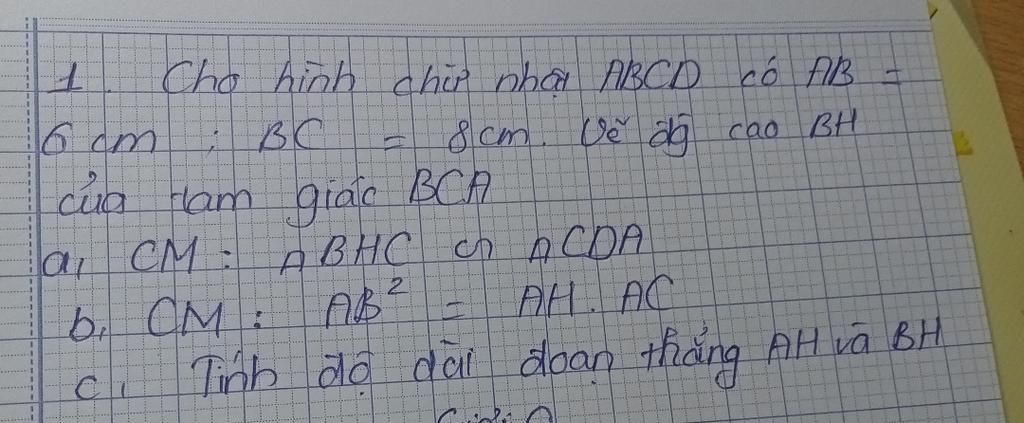 1. Cho hình chữ nhật ABCD có AB =
6 cm ; BC = 8 cm. Vẽ đg cao BH
của tam giác BCA
a, CM : Δ BHC ∽ Δ CDA
b, CM : AB² = AH. AC
c, Tính độ dài đoạn thẳng AH và BH